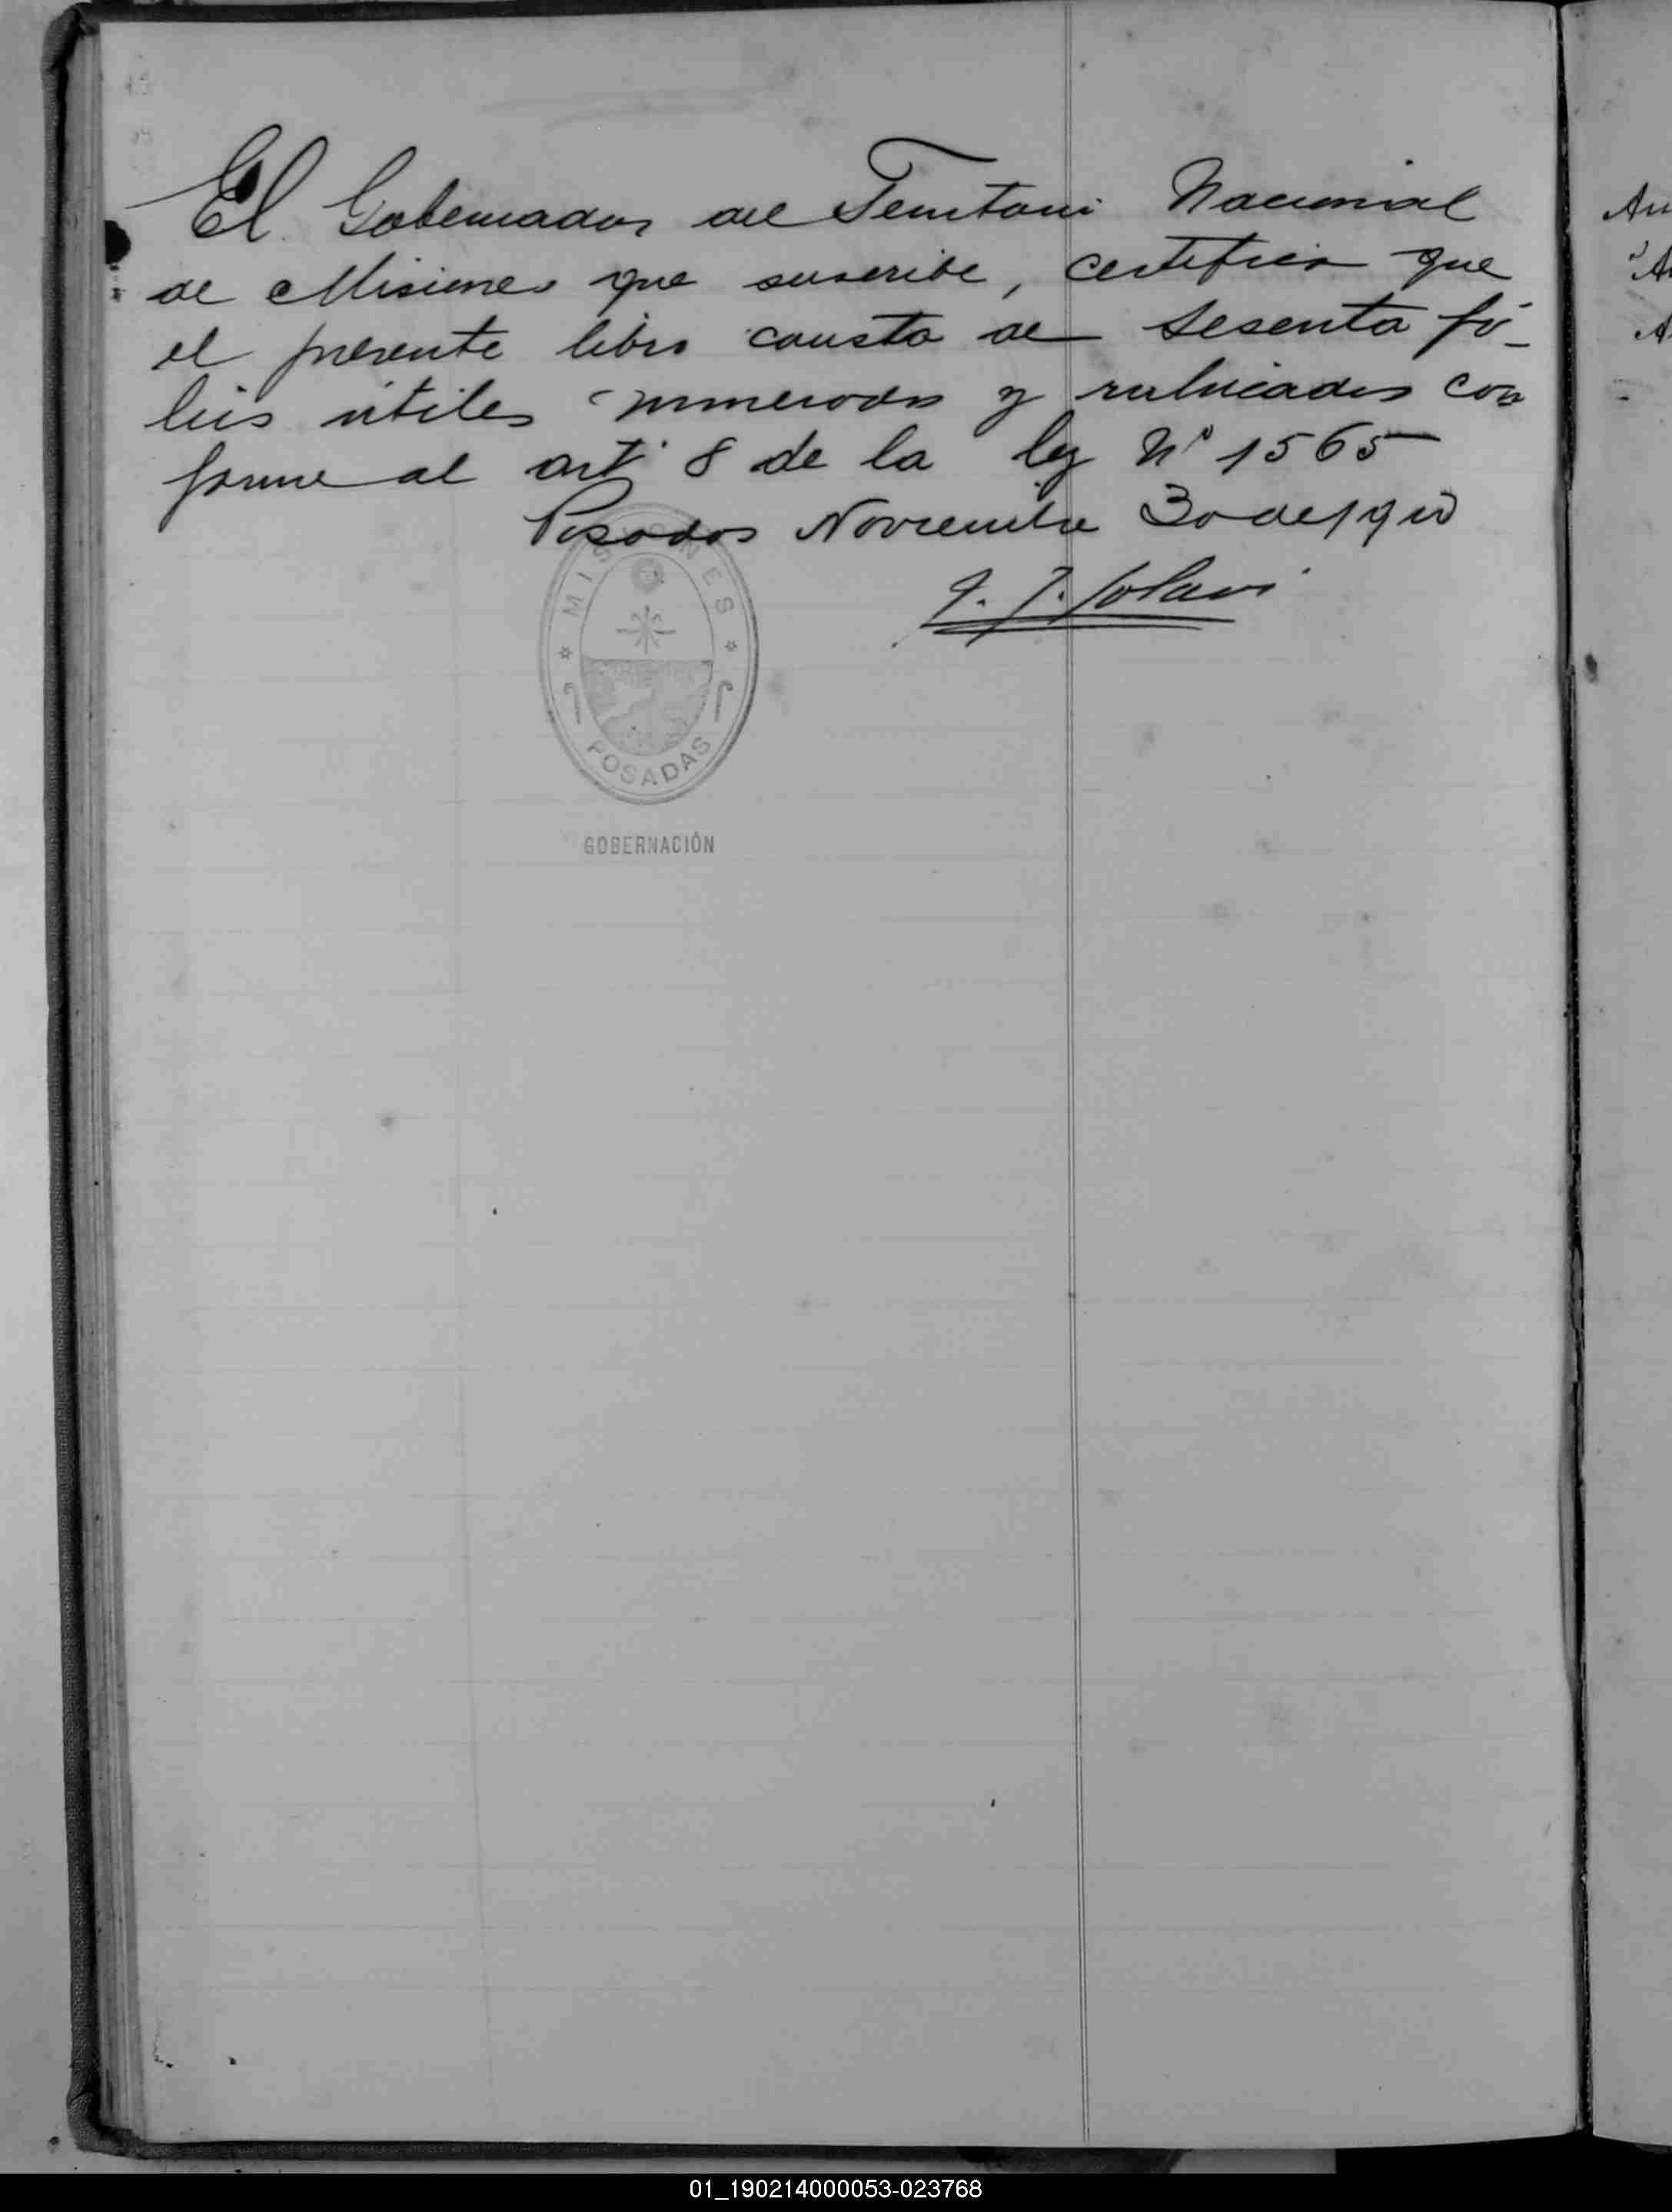 El Gobernador del Territorio Nacional
de Misiones que suscribe, certifica que
el presente libro consta de sesenta fó-
lios útiles numerados y rubricados con
forme al art° 8 de la ley N° 1565
Posadas Noviembre 30 de 1910
J. J. Lanusse
MISIONES
POSADAS
GOBERNACIÓN
01_190214000053-023768